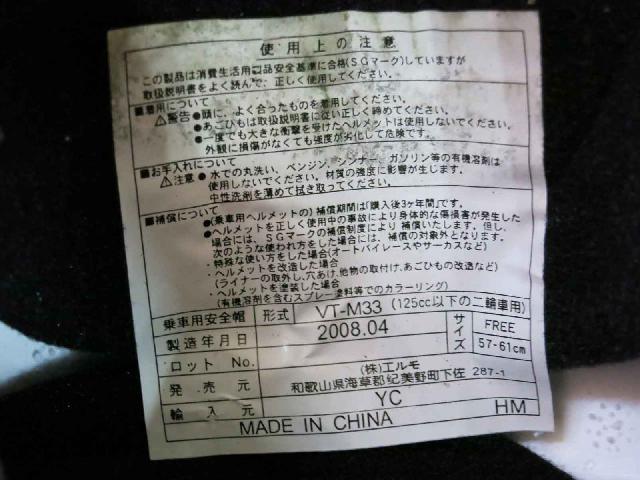 使用上の注意
この製品は消費生活用製品安全基準に合格(SGマーク)していますが
取扱説明書をよく読んで、正しく使用してください。
■着用について
⚠警告 ●頭に、よく合ったものを着用してください。
●あごひもは取扱説明書に従い正しく締めてください。
●一度でも大きな衝撃を受けたヘルメットは使用しないでください。
外観に損傷がなくても強度が劣化して危険です。
■お手入れについて
⚠注意 ● 水での丸洗い、ベンジン、シンナー、ガソリン等の有機溶剤は
使用しないでください。材質の強度に影響が生じます。
中性洗剤を薄めて拭き取ってください。
■補償について
●(乗車用ヘルメットの)補償期間は「購入後3ヶ年間」です。
●ヘルメットを正しく使用中の事故により身体的な傷損害が発生した
場合には、SGマークの補償制度により補償いたします。但し、
次のような使われ方をした場合には、補償の対象外となります。
・特殊な使い方をした場合(オートバイレースやサーカスなど)
・ヘルメットを改造した場合
(ライナーの取外し、穴あけ,他物の取付け,あごひもの改造など)
・ヘルメットを塗装した場合
(有機溶剤を含むスプレー塗料等でのカラーリング)
乗車用安全帽 形式 VT-M33 (125cc以下の二輪車用)
製造年月日 2008.04 サイズ FREE 57-61cm
ロット No.
発売元 (株)エルモ
和歌山県海草郡紀美野町下佐 287-1
輸入元 YC
MADE IN CHINA HM